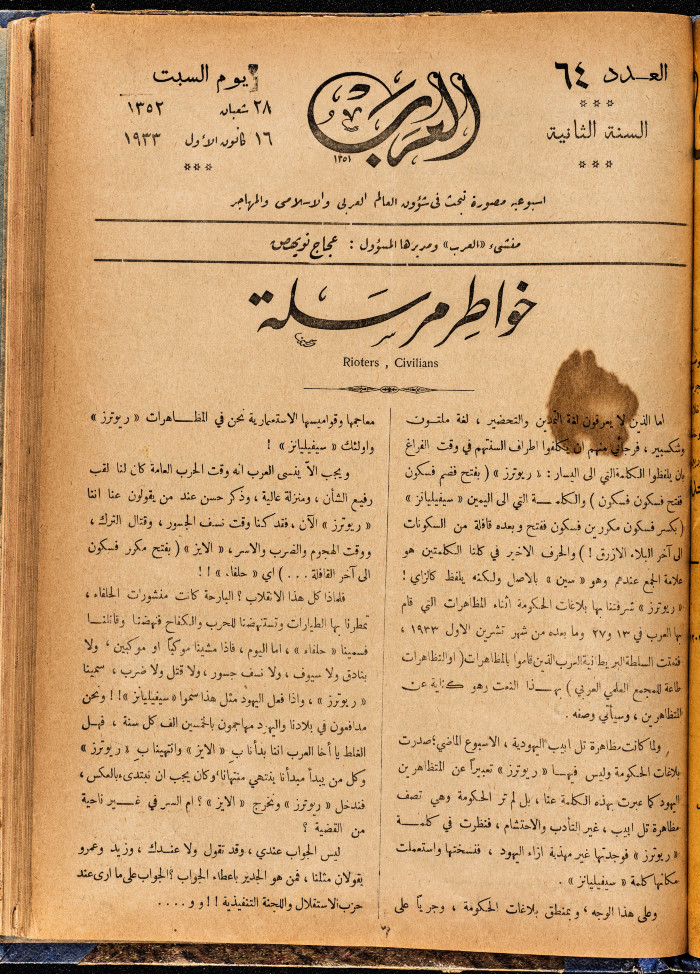 العدد ٦٤
السنة الثانية
العرب
١٣٥١
يوم السبت
٢٨ شعبان ١٣٥٢
١٦ كانون الأول ١٩٣٣
اسبوعية مصورة تبحث في شؤون العالم العربي والاسلامي والمهاجر
منشىء «العرب» ومديرها المسؤول : عجاج نويهض
خواطر مرسلة
Rioters , Civilians
اما الذين لا يعرفون لغة التمدن والتحضير ، لغة ملتون
وشكسبير ، فرجائي منهم ان يتكلفوا اطراف السنتهم في وقت الفراغ
بان يلفظوا الكلمة التي الى اليسار : « ريوترز » ( بفتح فضم فسكون
ففتح فسكون فسكون ) والكلمة التي الى اليمين « سيفيليانز »
( بكسر فسكون مكررين فسكون ففتح وبعده قافلة من السكونات
الى آخر البلاء الازرق ! ) والحرف الاخير في كلتا الكلمتين هو
علامة الجمع عندهم وهو « سين » بالاصل ولكنه يلفظ كالزاي !
« ريوترز » شرفتنا بها بلاغات الحكومة أثناء المظاهرات التي قام
بها العرب في ١٣ و٢٧ وما بعده من شهر تشرين الاول ١٩٣٣ ،
فنعتت السلطة البريطانية العرب الذين قاموا بالمظاهرات ( او التظاهرات
طاعة للمجمع العلمي العربي ) بهذا النعت وهو كناية عن
المتظاهرين ، وسيأتي وصفه .
ولما كانت مظاهرة تل ابيب اليهودية ، الاسبوع الماضي ، صدرت
بلاغات الحكومة وليس فيها « ريوترز » تعبيراً عن المتظاهرين
اليهود كما عبرت بهذه الكلمة عنا ، بل لم تر الحكومة وهي تصف
مظاهرة تل ابيب ، غير التأدب والاحتشام ، فنظرت في كلمة
« ريوترز » فوجدتها غير مهذبة ازاء اليهود ، ففسختها واستعملت
مكانها كلمة « سيفيليانز » .
وعلى هذا الوجه ، وبمنطق بلاغات الحكومة ، وجرياً على
معاجمها وقواميسها الاستعمارية نحن في المظاهرات « ريوترز »
واولئك « سيفيليانز » !
ويجب الا ينسى العرب انه وقت الحرب العامة كان لنا لقب
رفيع الشأن ، ومنزلة عالية ، وذكر حسن عند من يقولون عنا اننا
« ريوترز » الآن ، فقد كنا وقت نسف الجسور ، وقتال الترك ،
ووقت الهجوم والضرب والاسر ، « الايز » ( بفتح مكرر فسكون
الى آخر القافلة . . . ) اي « حلفاء » ! !
فلماذا كل هذا الانقلاب ؟ البارحة كانت منشورات الحلفاء ،
تمطرنا بها الطيارات وتستنهضنا للحرب والكفاح فنهضنا وقاتلنا
فسمينا « حلفاء » ، اما اليوم ، فاذا مشينا موكباً او موكبين ، ولا
بنادق ولا سيوف ، ولا نسف جسور ، ولا قتل ولا ضرب ، سمينا
« ريوترز » ، واذا فعل اليهود مثل هذا سموا « سيفيليانز » !! ونحن
مدافعون في بلادنا واليهود مهاجمون بالخمسين الف كل سنة ، فهل
الغلط يا أخا العرب اننا بدأنا بـ « الايز » وانتهينا بـ « ريوترز »
وكل من يبدأ مبدأنا ينتهي منتهانا ؟ وكان يجب ان نبتدىء بالعكس ،
فندخل « ريوترز » ونخرج « الايز » ؟ ام السر في غير ناحية
من القضية ؟
ليس الجواب عندي ، وقد تقول ولا عندك ، وزيد وعمرو
يقولان مثلنا ، فمن هو الجدير باعطاء الجواب ؟ الجواب على ما ارى عند
حزب الاستقلال واللجنة التنفيذية !! و و . . . .